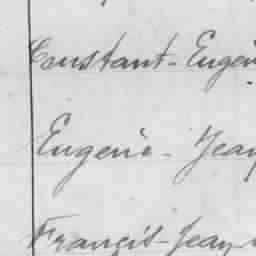 Constant-Eugèn
Eugène-Jean
Francis-Jean